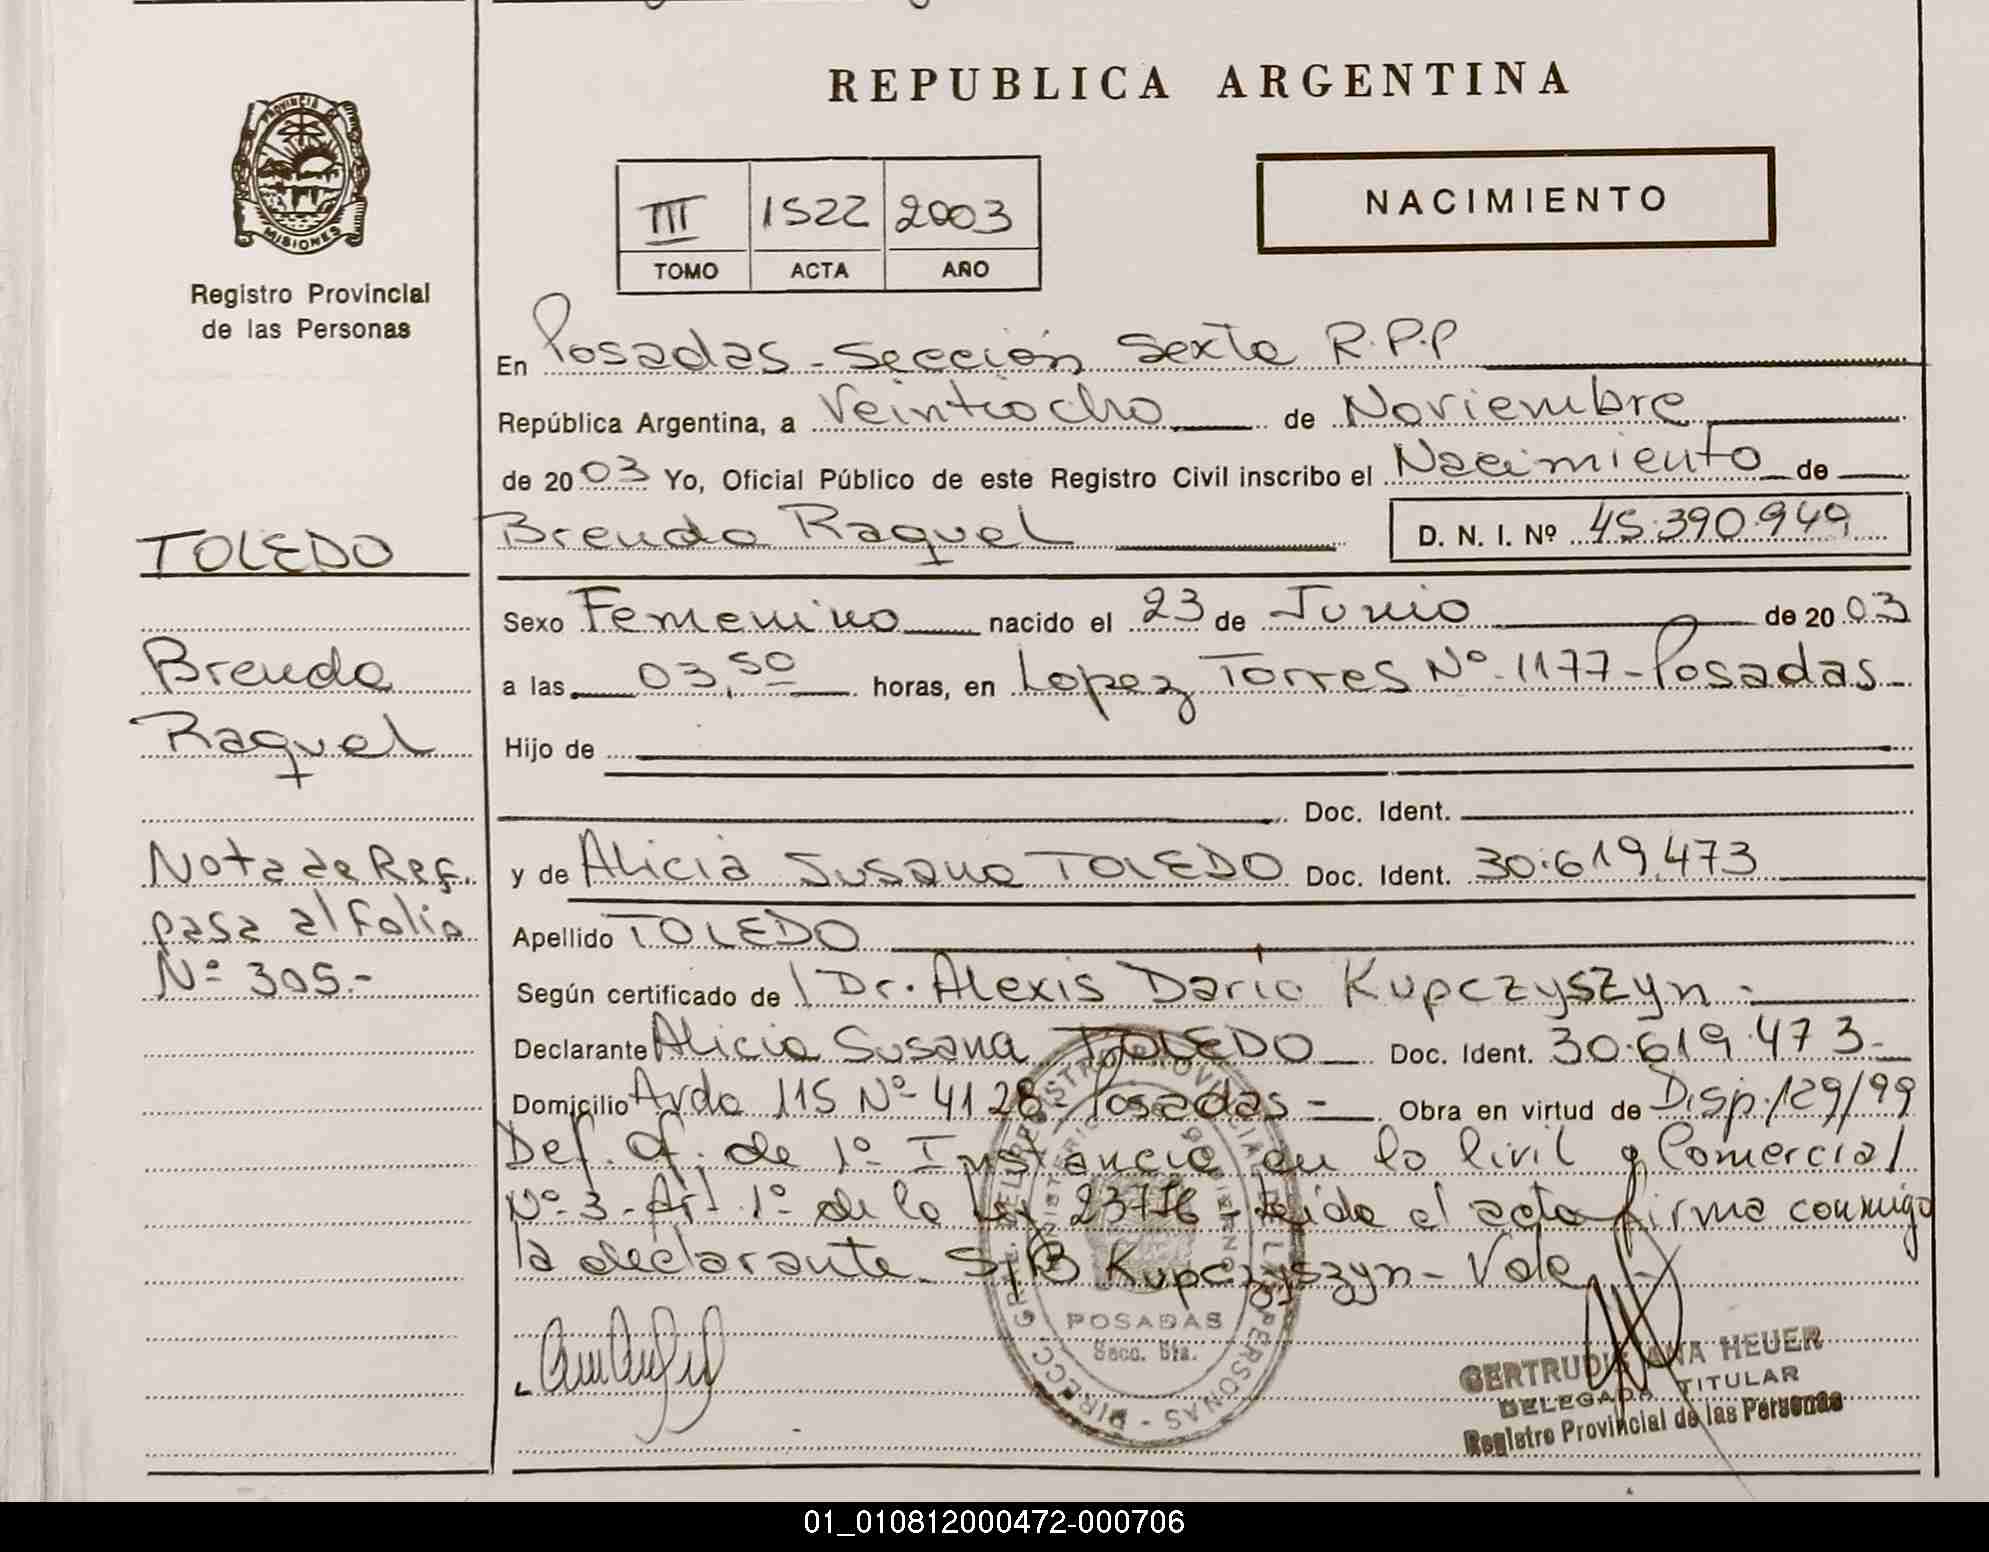 REPUBLICA ARGENTINA
PROVINCIA
MISIONES
Registro Provincial
de las Personas
III 1522 2003
TOMO ACTA AÑO
NACIMIENTO
En Posadas - Sección Sexta R.P.P
República Argentina, a Veintiocho de Noviembre
de 20 03 Yo, Oficial Público de este Registro Civil inscribo el Nacimiento de
TOLEDO
Brenda Raquel D. N. I. Nº 45.390.949
Sexo Femenino nacido el 23 de Junio de 20 03
Brenda
a las 03,50 horas, en Lopez Torres Nº 1177 - Posadas
Raquel
Hijo de
Doc. Ident.
Nota de Ref.
y de Alicia Susana TOLEDO Doc. Ident. 30.619.473
pasa al folio
Apellido TOLEDO
Nº 305.-
Según certificado de Dr. Alexis Dario Kupczyszyn -
Declarante Alicia Susana TOLEDO Doc. Ident. 30.619.473-
Domicilio Avda 115 Nº 4128 - Posadas - Obra en virtud de Disp. 129/99
Def. Of. de 1º Instancia en lo Civil y Comercial
Nº 3 - Art 1º de la Ley - Leida el acta firma conmigo
la declarante S/B Kupczyszyn - Vale
POSADAS
Secc. 6ta.
GERTRUDIS ANA HEUER
DELEGADA TITULAR
Registro Provincial de las Personas
01_010812000472-000706